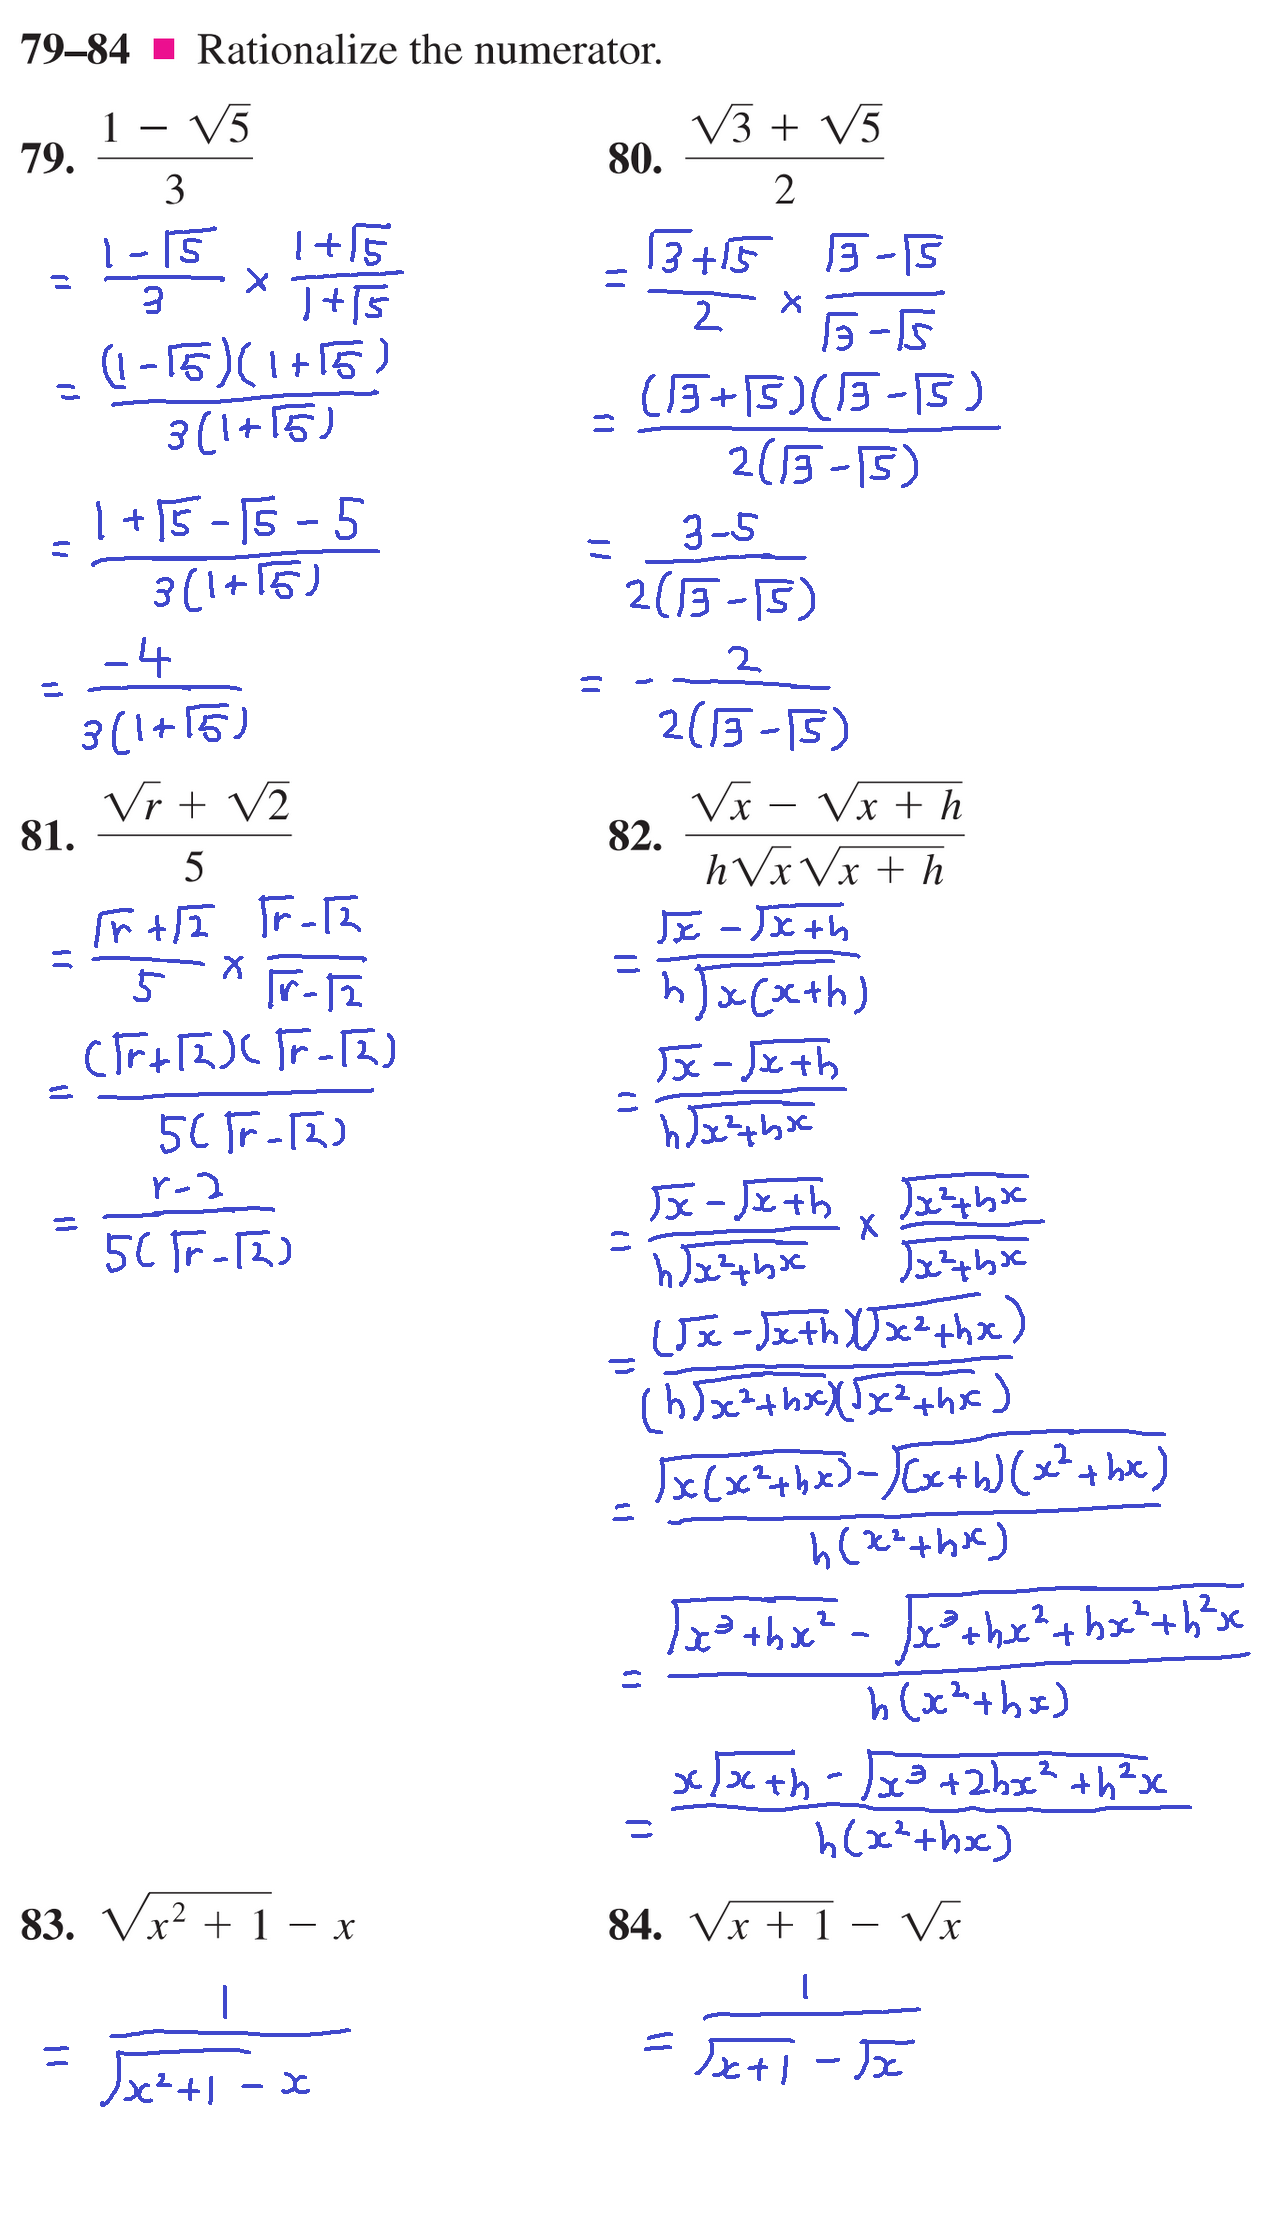 79–84 ■ Rationalize the numerator.
79. (1 − √5)/3
= (1 − √5)/3 × (1 + √5)/(1 + √5)
= ((1 − √5)(1 + √5))/(3(1 + √5))
= (1 + √5 − √5 − 5)/(3(1 + √5))
= −4/(3(1 + √5))
80. (√3 + √5)/2
= (√3 + √5)/2 × (√3 − √5)/(√3 − √5)
= ((√3 + √5)(√3 − √5))/(2(√3 − √5))
= (3 − 5)/(2(√3 − √5))
= − 2/(2(√3 − √5))
81. (√r + √2)/5
= (√r + √2)/5 × (√r − √2)/(√r − √2)
= ((√r + √2)(√r − √2))/(5(√r − √2))
= (r − 2)/(5(√r − √2))
82. (√x − √(x + h))/(h√x√(x + h))
= (√x − √(x + h))/(h√(x(x + h)))
= (√x − √(x + h))/(h√(x² + hx))
= (√x − √(x + h))/(h√(x² + hx)) × √(x² + hx)/√(x² + hx)
= ((√x − √(x + h))(√(x² + hx)))/((h√(x² + hx))(√(x² + hx)))
= (√(x(x² + hx)) − √((x + h)(x² + hx)))/(h(x² + hx))
= (√(x³ + hx²) − √(x³ + hx² + hx² + h²x))/(h(x² + hx))
= (x√(x + h) − √(x³ + 2hx² + h²x))/(h(x² + hx))
83. √(x² + 1) − x
= 1/(√(x² + 1) − x)
84. √(x + 1) − √x
= 1/(√(x + 1) − √x)